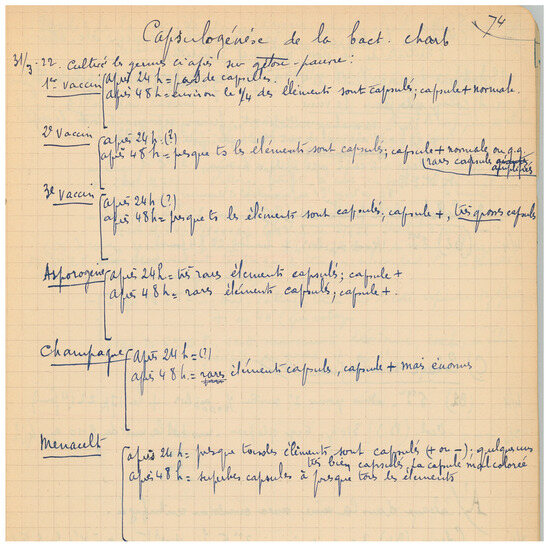 74
Capsulogénèse de la bact. charb
31/3-22. Cultivé les germes ci-après sur gélose-pauvre:
1er vaccin après 24h = pas de capsules.
après 48h = environ le 1/4 des éléments sont capsulés; capsule + normale.
2e vaccin après 24h. (?)
après 48h = presque ts les éléments sont capsulés; capsule + normale ou q.q
rares capsules amplifiées
3e vaccin après 24h (?)
après 48h = presque ts les éléments sont capsulés; capsule +, très grosses capsules
Asporogène après 24h = très rares éléments capsulés; capsule +
après 48h = rares éléments capsulés; capsule +.
Champagne après 24h = (?)
après 48h = rares éléments capsulés, capsule + mais énormes
Menault après 24h = presque tous les éléments sont capsulés (+ ou -); quelques uns
très bien capsulés, la capsule mal colorée
après 48h = superbes capsules à presque tous les éléments